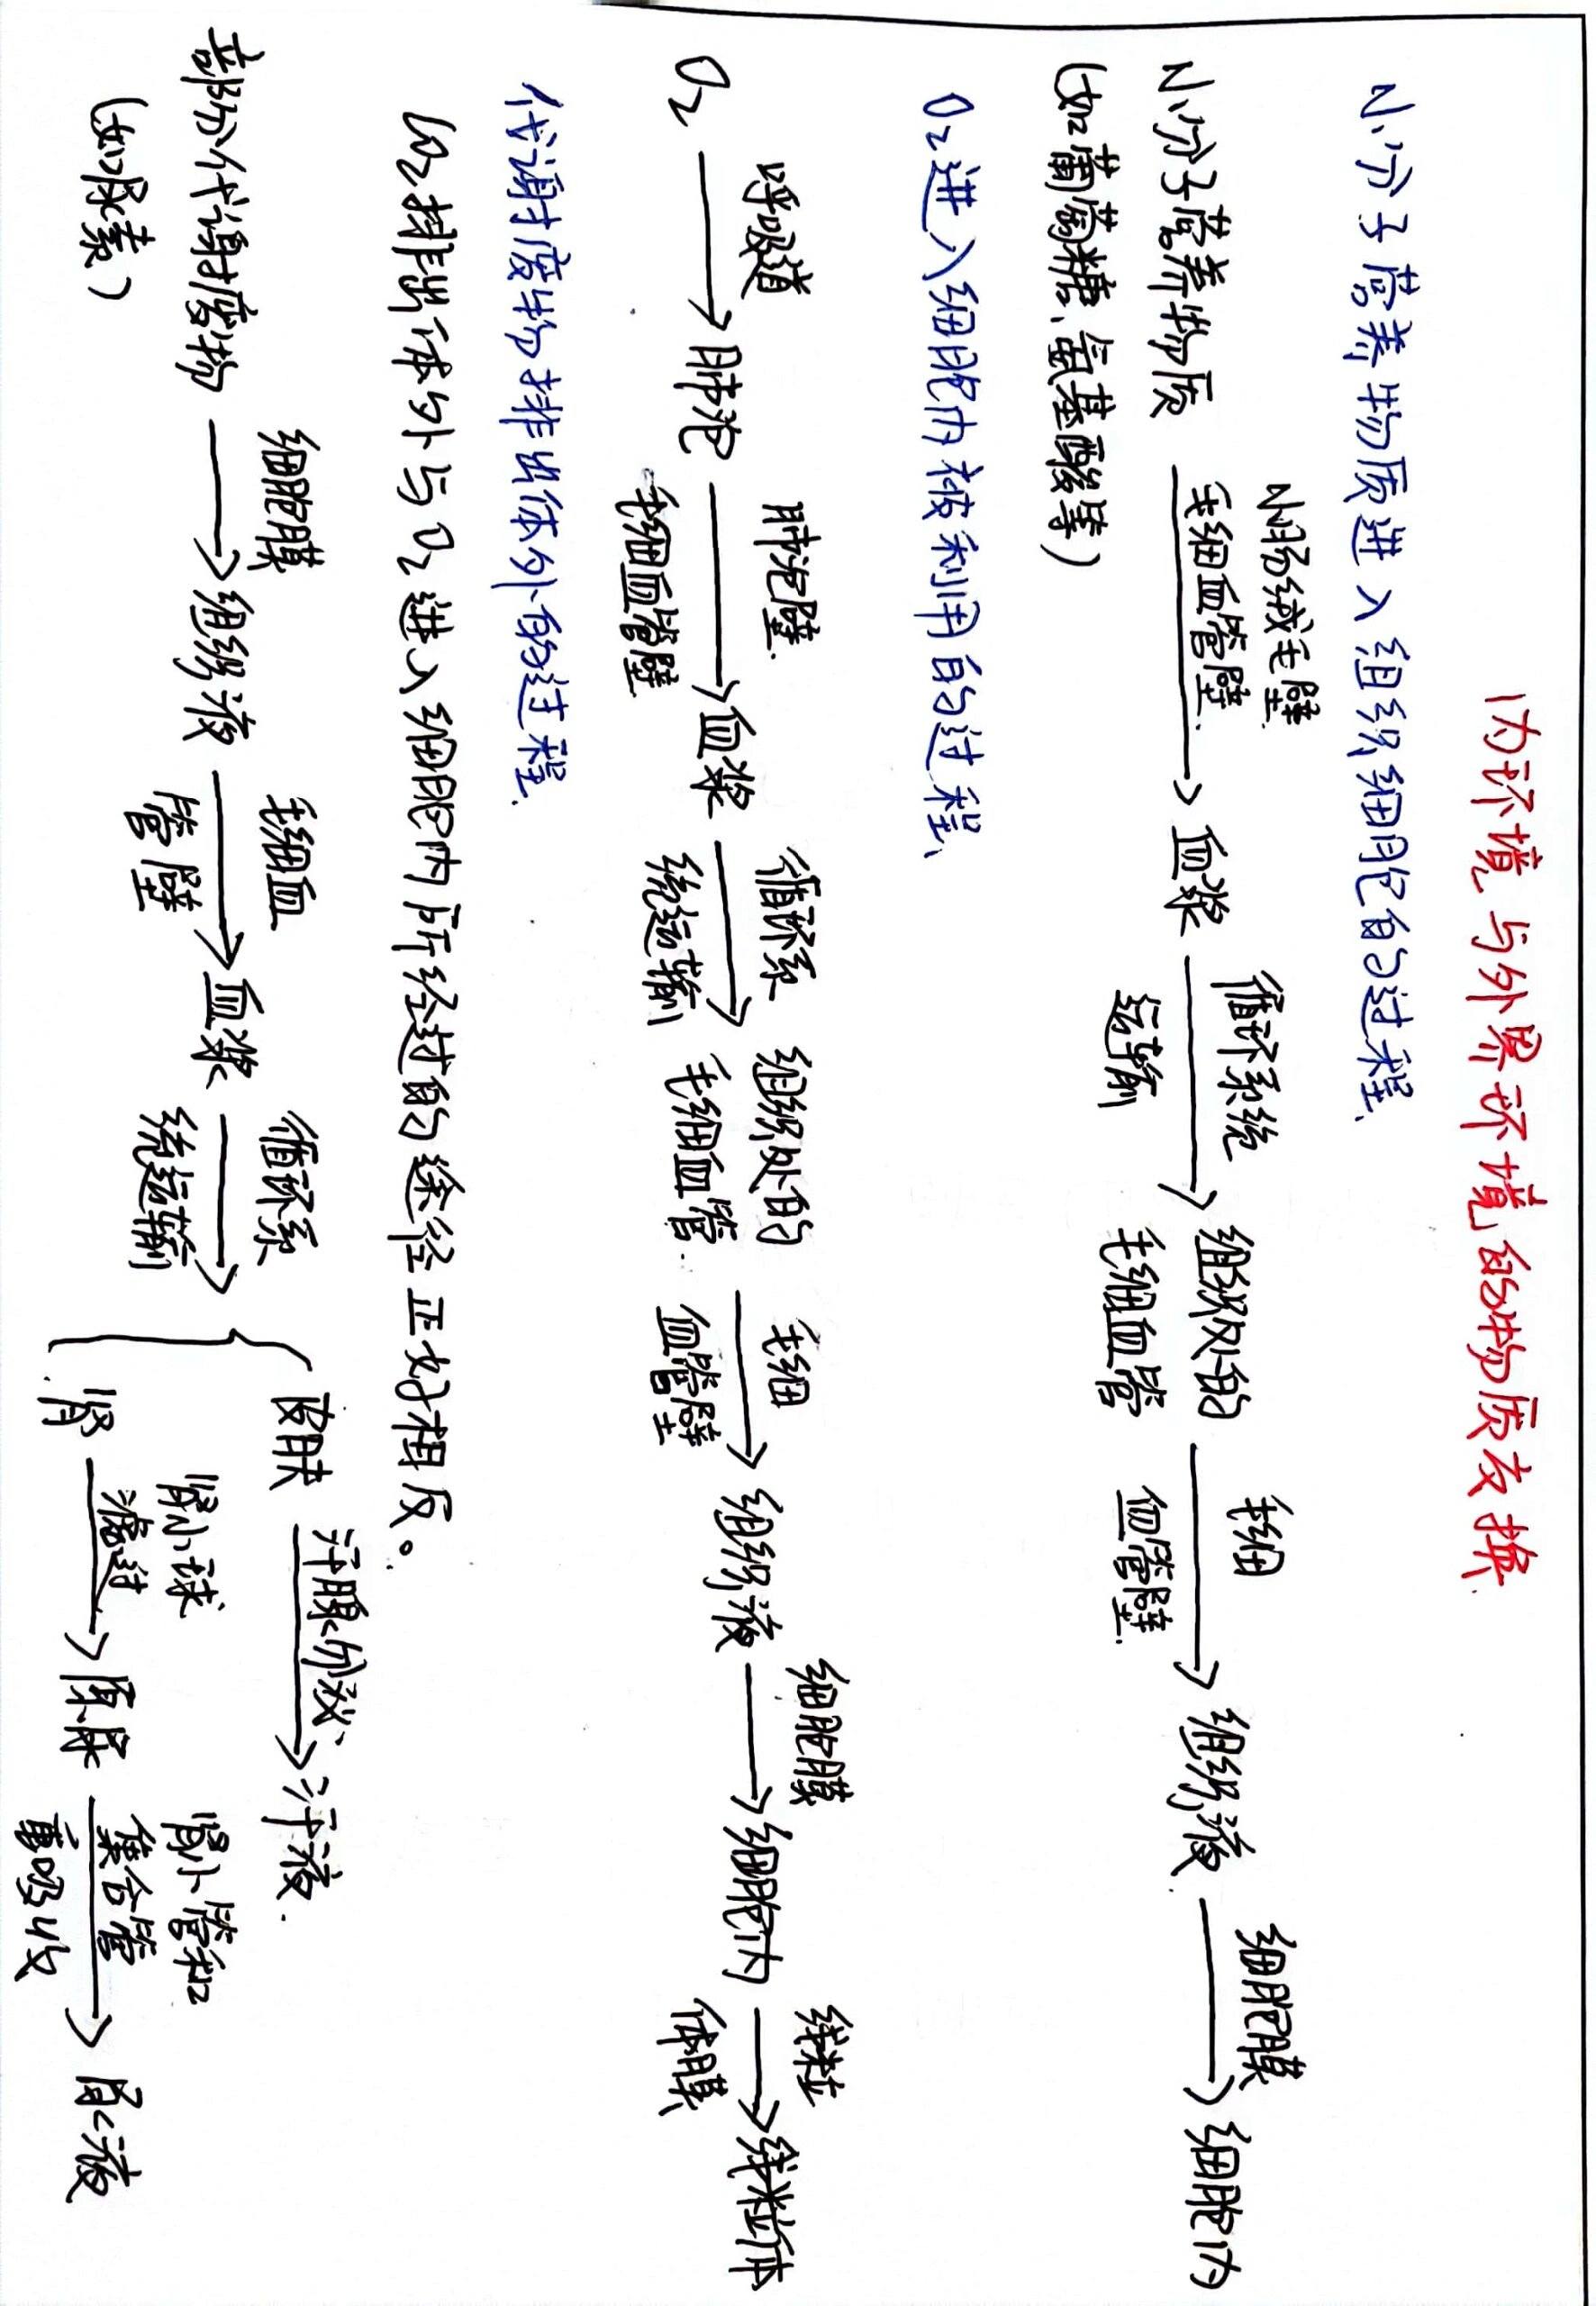 内环境与外界环境的物质交换
小分子营养物质进入组织细胞的过程
小肠绒毛壁 循环系统 毛细 细胞膜
小分子营养物质 → 血浆 → 组织处的毛细血管 → 组织液 → 细胞内
毛细血管壁 运输 血管壁
(如葡萄糖、氨基酸等)
O₂进入细胞内被利用的过程
呼吸道 肺泡壁 循环系 毛细 细胞膜 线粒
O₂ → 肺泡 → 血浆 → 组织处的毛细血管 → 组织液 → 细胞内 → 线粒体
毛细血管壁 统运输 血管壁 体膜
代谢废物排出体外的过程
CO₂排出体外与O₂进入细胞内所经过的途径正好相反。
细胞膜 毛细血 循环系
部分代谢废物 → 组织液 → 血浆 →
(如尿素) 管壁 统运输
皮肤 汗腺分泌 → 汗液
肾小球 肾小管和
肾 → 原尿 → 尿液
滤过 集合管
重吸收